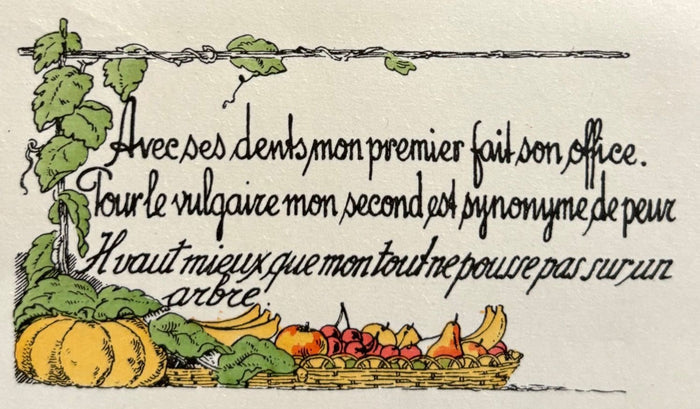 Avec ses dents mon premier fait son office.
Pour le vulgaire mon second est synonyme de peur
Il vaut mieux que mon tout ne pousse pas sur un
arbre.